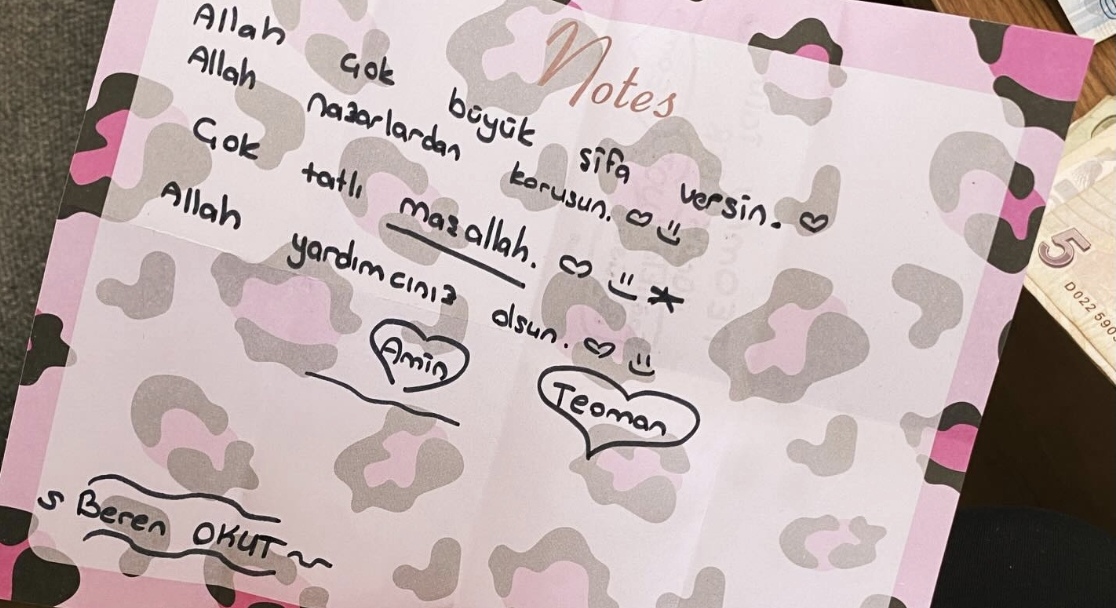 Notes
Allah Çok büyük şifa versin. ♡
Allah nazarlardan korusun. ♡
Çok tatlı maşallah. ♡
Allah yardımcınız olsun. ♡
Amin
Teoman
Beren OKUT
5